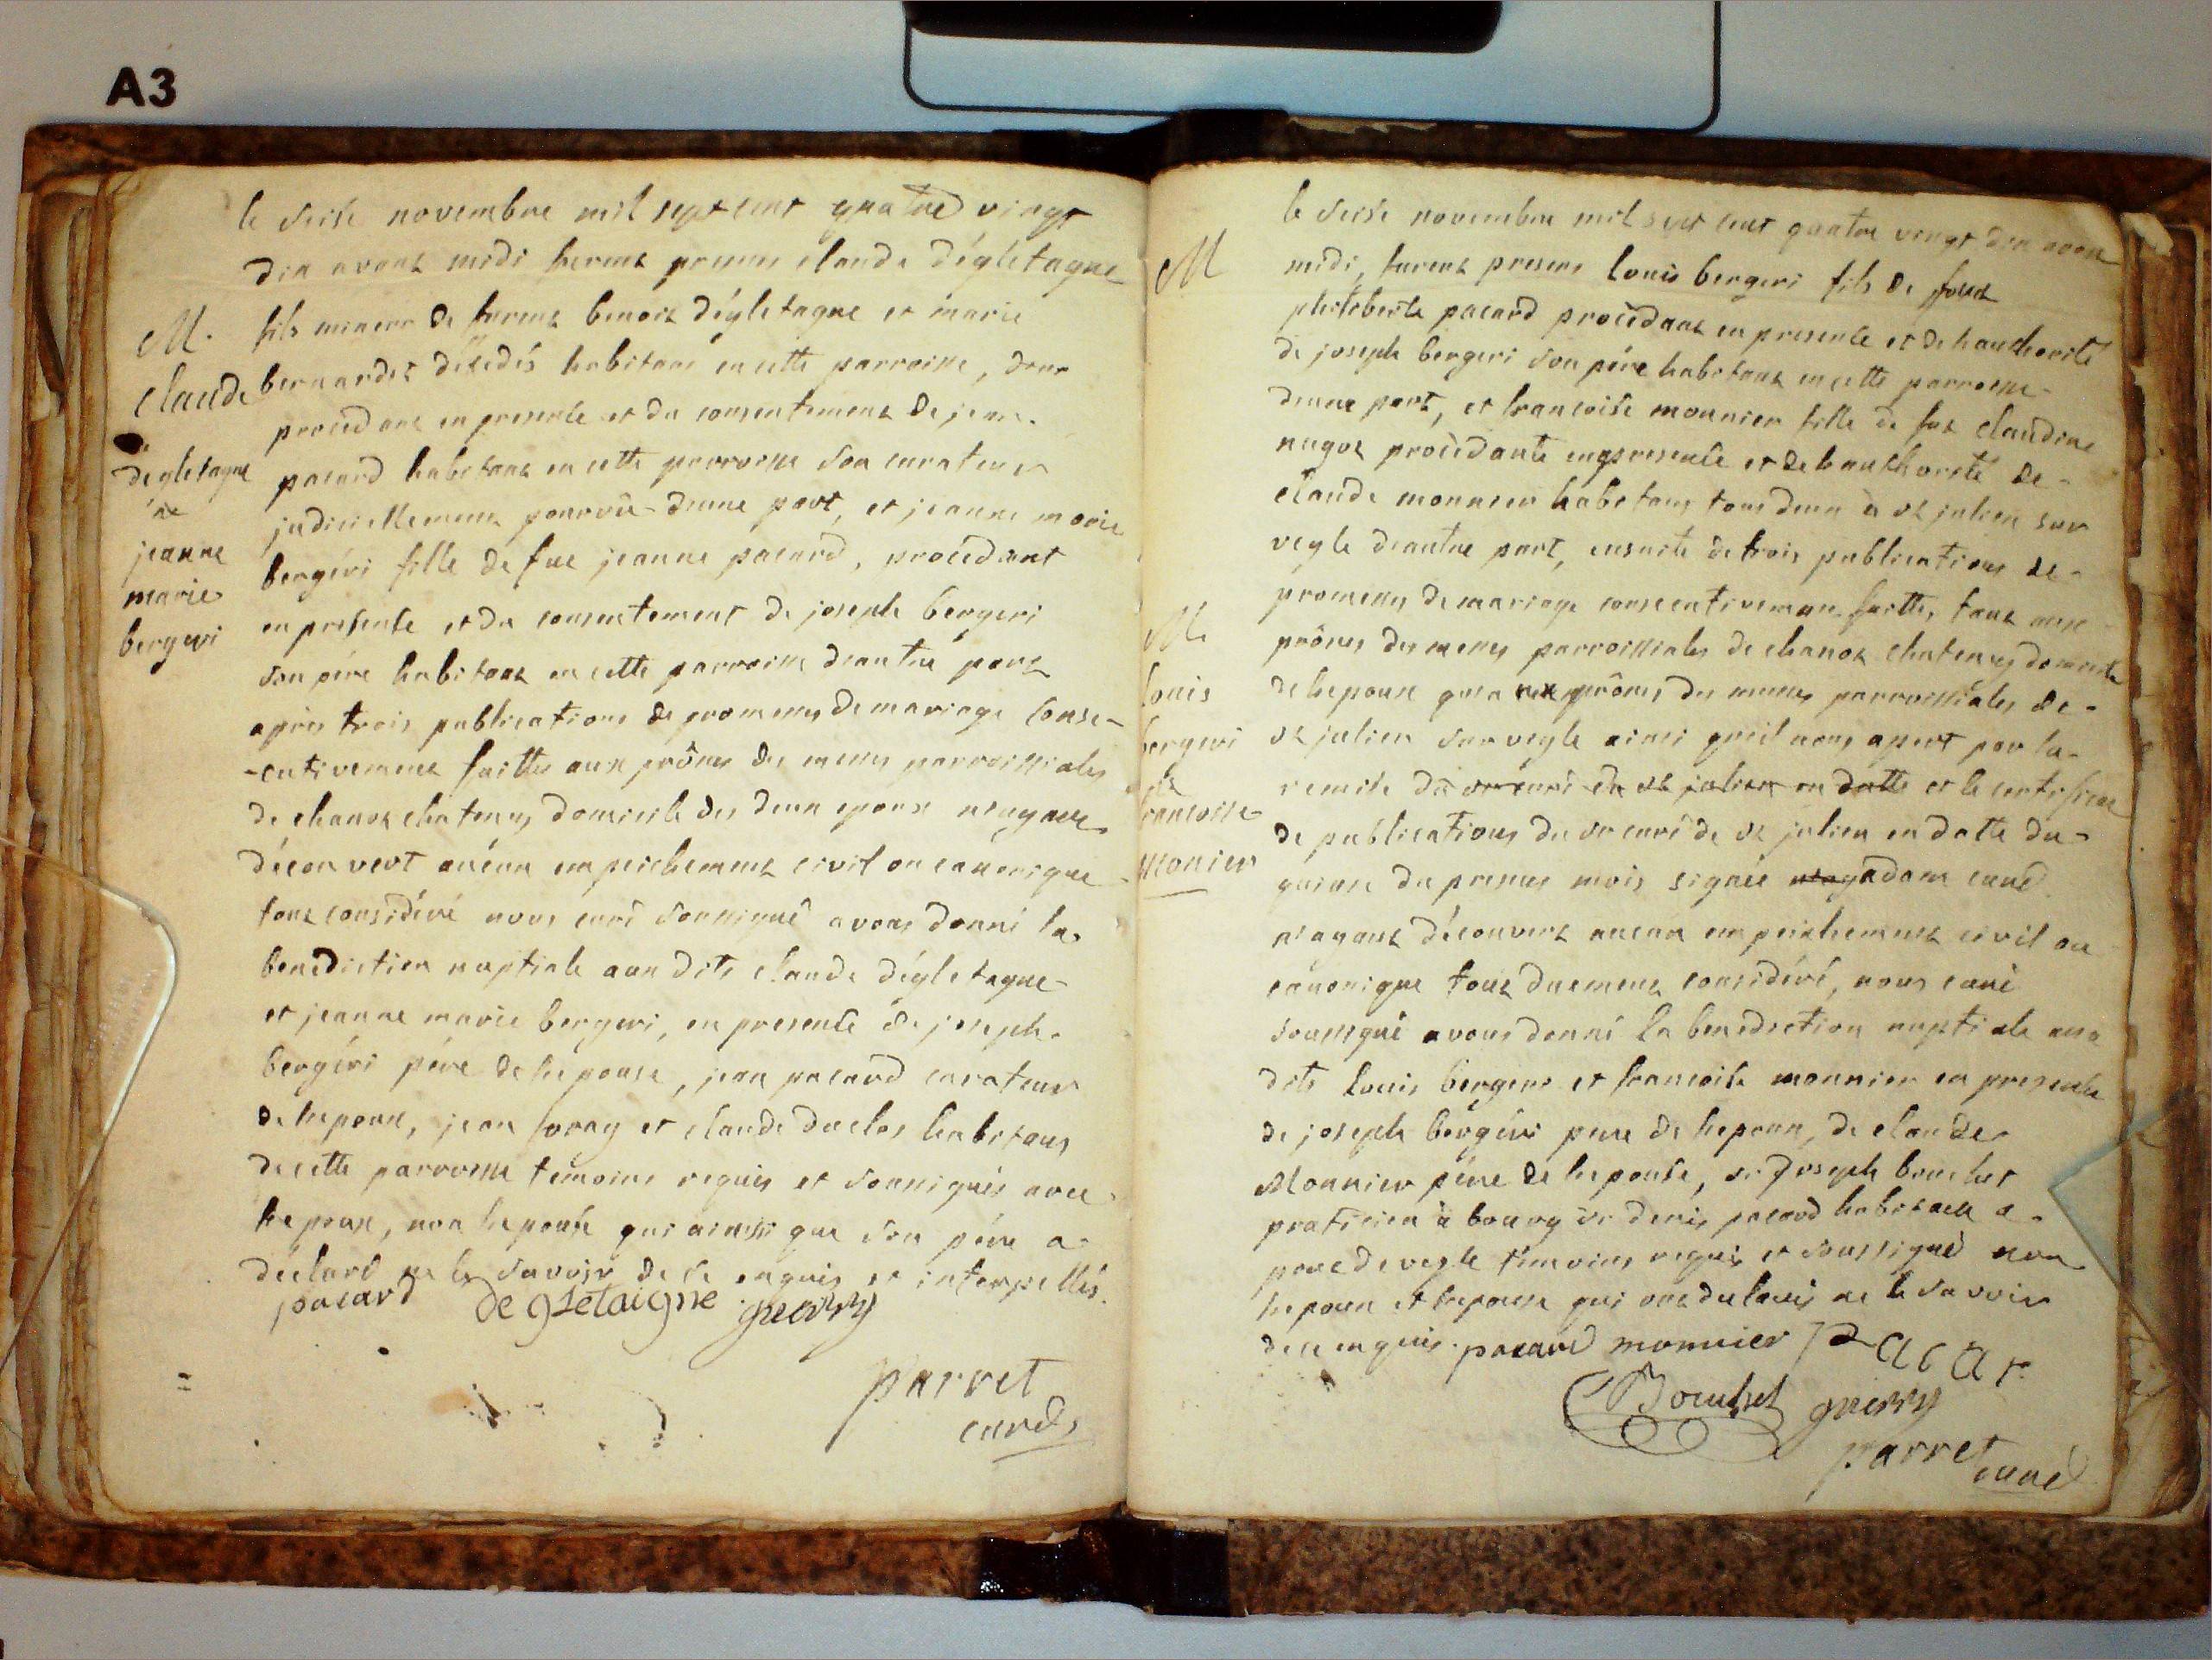 A3
le seise novembre mil sept cent quatre vingt
dix avant midi furent presens claude dégletagne
M. fils mineur de furent benoit dégletagne et marie
claude bernardet décédés habitant en cette parroisse,
procédant en presence et du consentement de jean
degletagne pacard habitant en cette parroisse son curateur
judiciellement pourvû d'une part, et jeanne marie
jeanne bergéri fille de fue jeanne pacard, procédant
marie en présence et du consentement de joseph bergeri
bergeri son pére habitant en cette parroisse d'autre part
après trois publications de promesses de mariage consé-
-cutivement faittes aux prônes des messes parroissiales
de chanoz chatenay domicile des deux epoux n'en ayant
découvert aucun empeichement civil ou canonique
tout considéré nous curé soussigné avons donné la
benediction nuptiale aux dits claude dégletagne
et jeanne marie bergeri, en presence de joseph
bergéri pére de l'épouse, jean pacard curateur
de l'epoux, jean foray et claude duclos habitans
de cette parroisse témoins requis et soussignés avec
l'epoux, non l'epouse qui ainsi que son pére a
déclaré ne le savoir de ce enquis et interpellés.
pacard degletaigne guerry
parret
curé
le seise novembre mil sept cent quatre vingt dix avant
M midi, furent presens Louis bergeri fils de
philiberte pacard procédant en presence et de l'authorité
de joseph bergeri son pére habitant en cette parroisse
d'une part, et francoise monnier fille de fue claudine
nugot procédante en presence et de l'authorité de
claude monnier habitans tous deux à st julien sur
veyle d'autre part, ensuite de trois publications de
promesses de mariage consecutivement faittes, tant aux
M prônes des messes parroissiales de chanoz chatenay domicile
louis de l'epoux qu'aux prônes des messes parroissiales de
bergeri st julien sur veyle ainsi qu'il nous apert par la
et remise du sr curé de st julien en datte et le certificat
francoise de publications du sr curé de st julien en datte du
Monier quinze du present mois signée adam curé
n'ayant découvert aucun empeichement civil ou
canonique tout duement considéré, nous curé
soussigné avons donné la benediction nuptiale aux
dits Louis bergeri et francoise monnier en presence
de joseph bergéri pere de l'epoux, de claude
Monnier pére de l'epouse, sr joseph bouchet
praticien à bourg sr denis pacard habitant a
pont de veyle témoins requis et soussigné non
l'epoux et l'epouse qui ont declaré ne le savoir
de ce enquis. pacard monnier Pacar
Bouchet guerry
parret curé